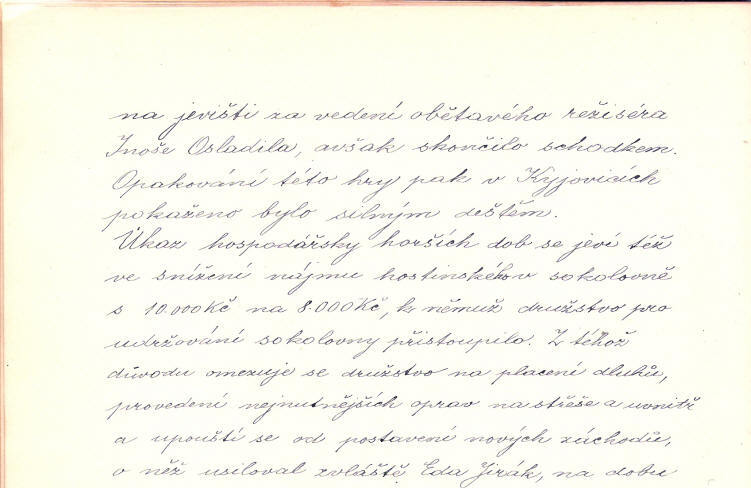 na jevišti za vedení obětavého režiséra
Inoše Osladila, avšak skončilo schodkem.
Opakování této hry pak v Kyjovicích
pokaženo bylo silným deštěm.
Úkaz hospodářsky horších dob se jeví též
ve snížení nájmu hostinského v sokolovně
s 10.000 Kč na 8.000 Kč, k němuž družstvo pro
udržování sokolovny přistoupilo. Z téhož
důvodu omezuje se družstvo na placení dluhů,
provedení nejnutnějších oprav na střeše a uvnitř
a upouští se od postavení nových záchodů,
o něž usiloval zvláště Eda Jirák, na dobu